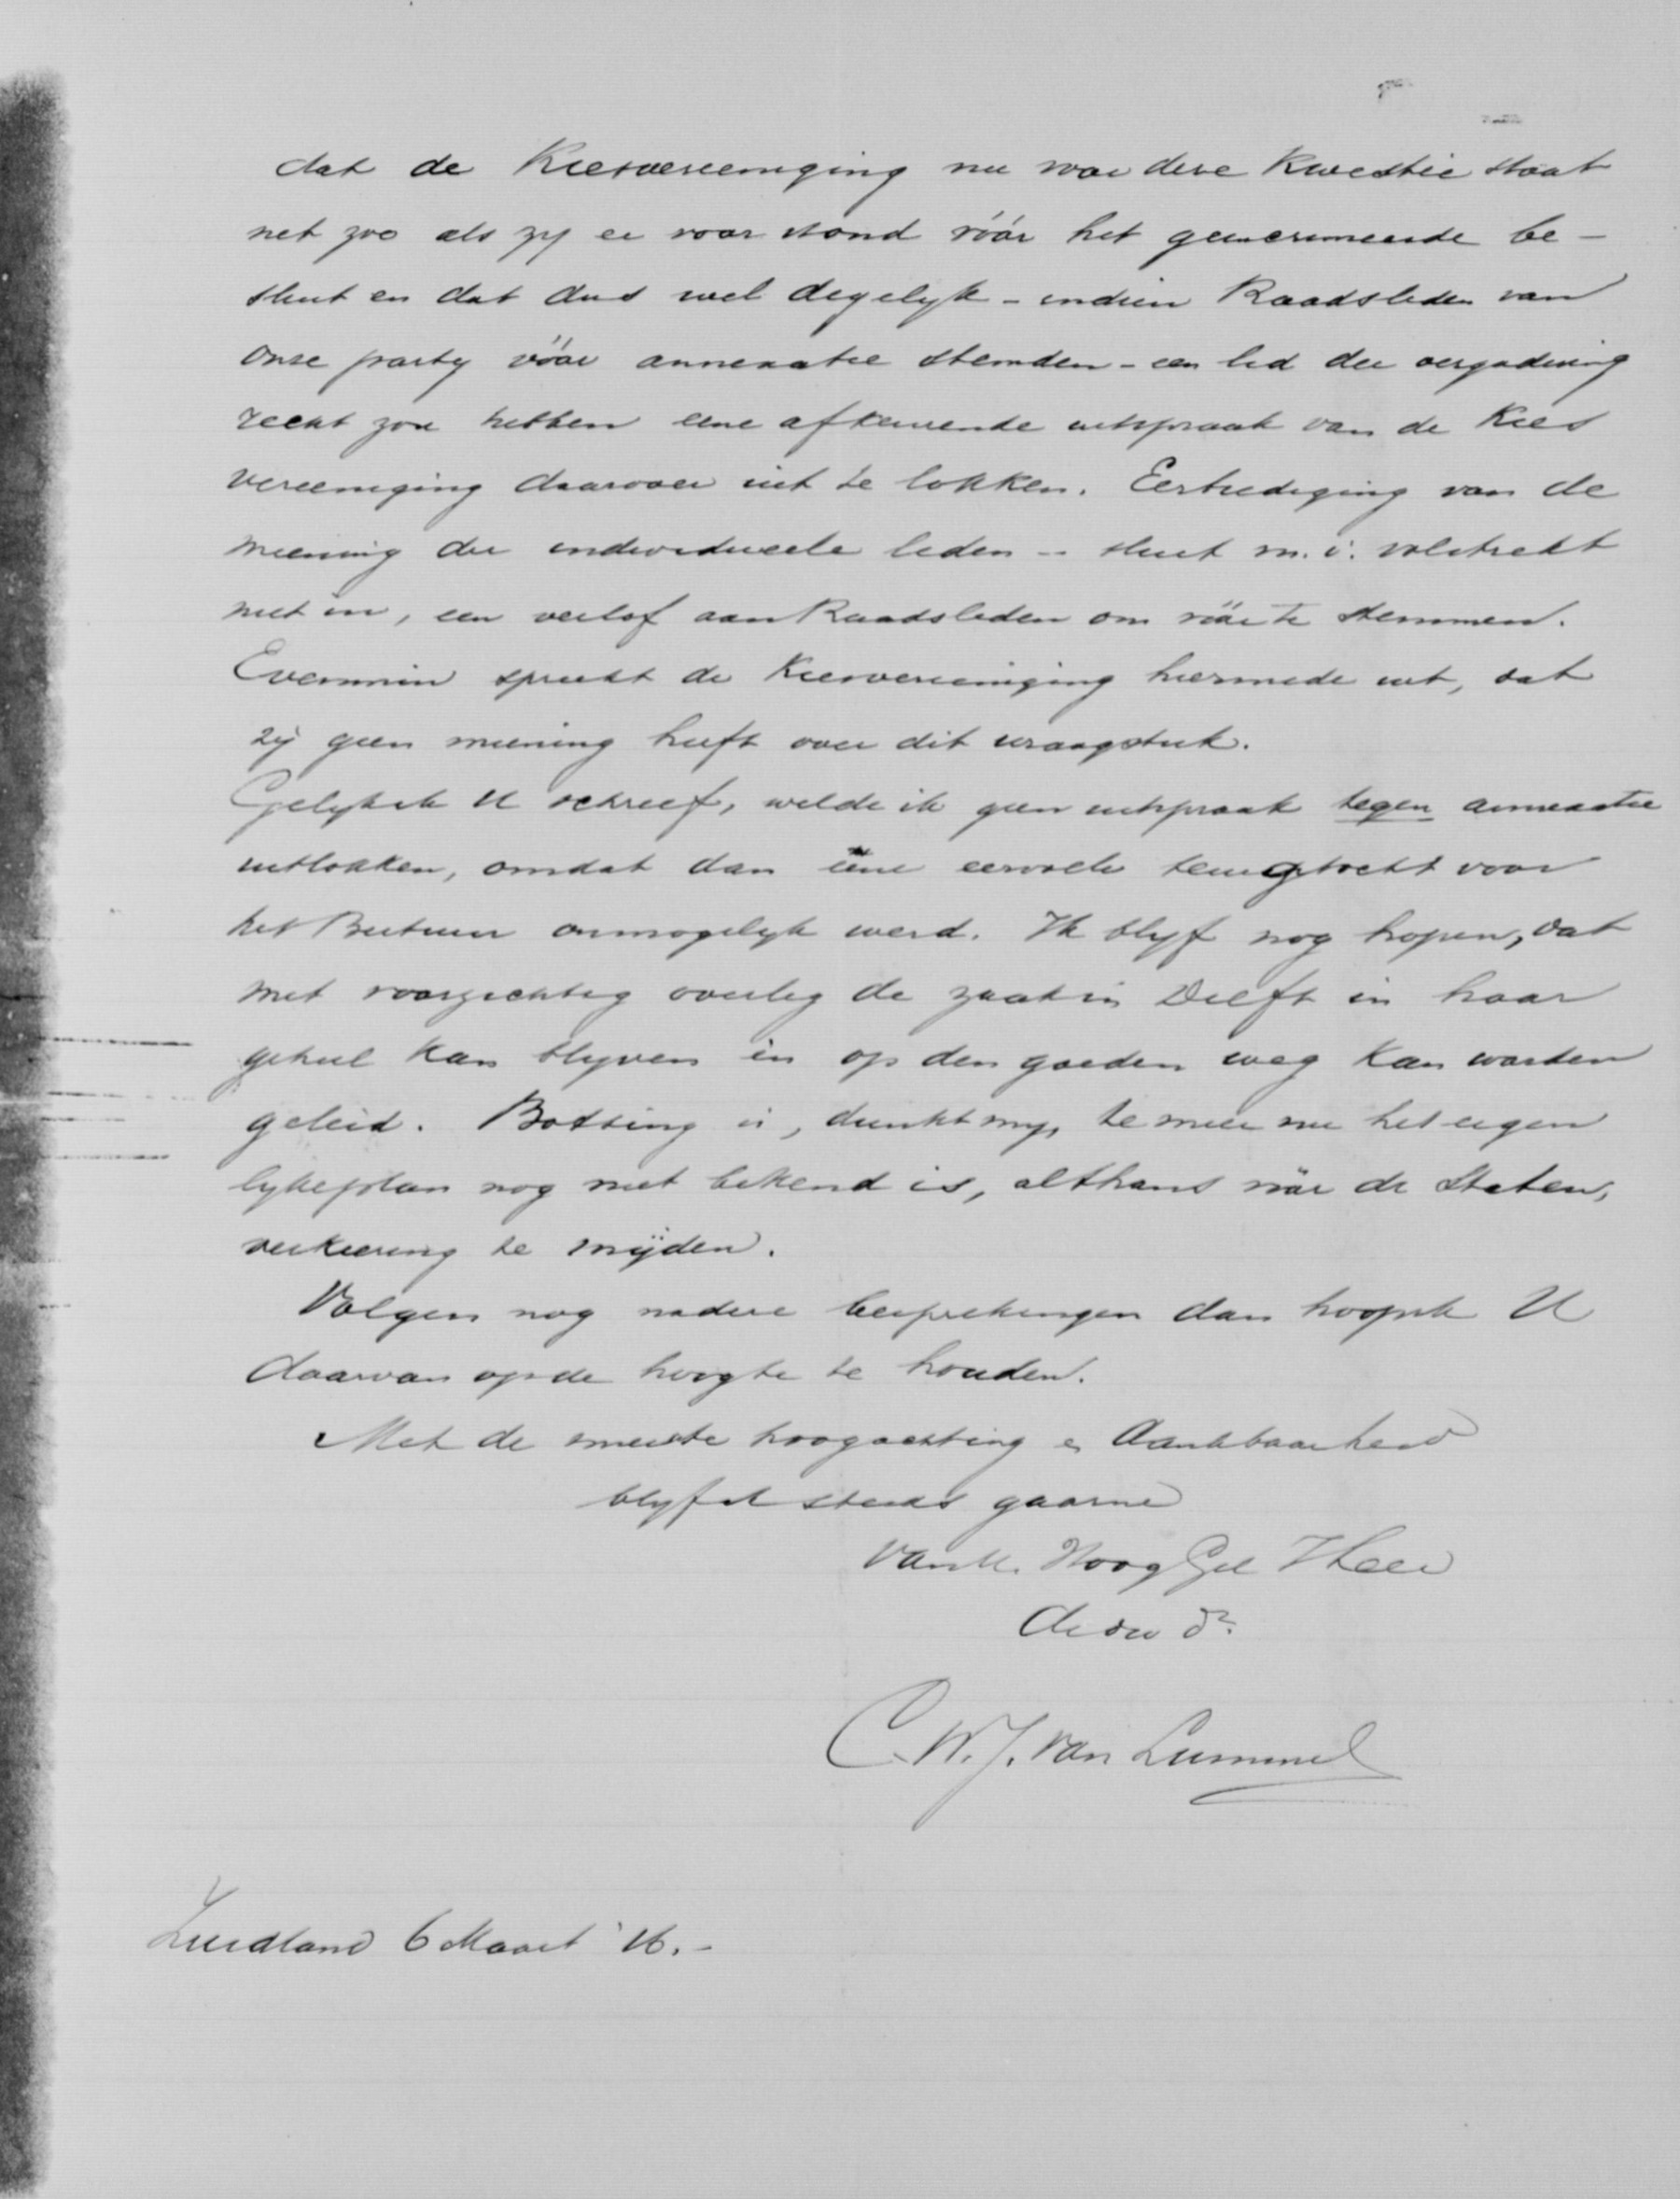 dat de Kiesvereeniging nu voor deze kwestie staat
net zoo als zij er voor stond vóór het geincrimeerde be-
sluit en dat dus wel degelijk - indien Raadsleden van
onze party vóór annexatie stemden - een lid der vergadering
recht zou hebben eene afkeurende uitspraak van de Kies
vereeniging daarover uit te lokken. Eerbiediging van de
meening der individueele leden - sluit m.i. volstrekt
niet in, een verlof aan Raadsleden om vóór te stemmen.
Evenmin spreekt de Kiesvereeniging hiermede uit, dat
zij geen meening heeft over dit vraagstuk.
Gelijk ik U schreef, wilde ik geen uitspraak tegen annexatie
uitlokken, omdat dan eene eervolle terugtocht voor
het Bestuur onmogelijk werd. Ik blijf nog hopen, dat
met voorzichtig overleg de zaak in Delft in haar
geheel kan blijven en op den goeden weg kan worden
geleid. Botsing is, dunkt mij, te meer nu het eigen
lijke plan nog niet bekend is, althans vóór de Staten,
verkiezing te mijden.
Volgen nog nadere besprekingen dan hoop ik U
daarvan op de hoogte te houden.
Met de meeste hoogachting en dankbaarheid
blijf ik steeds gaarne
van U. HoogGel Heer
de dw dr.
C. W. J. van Lummel
Zuidland 6 Maart '16.-